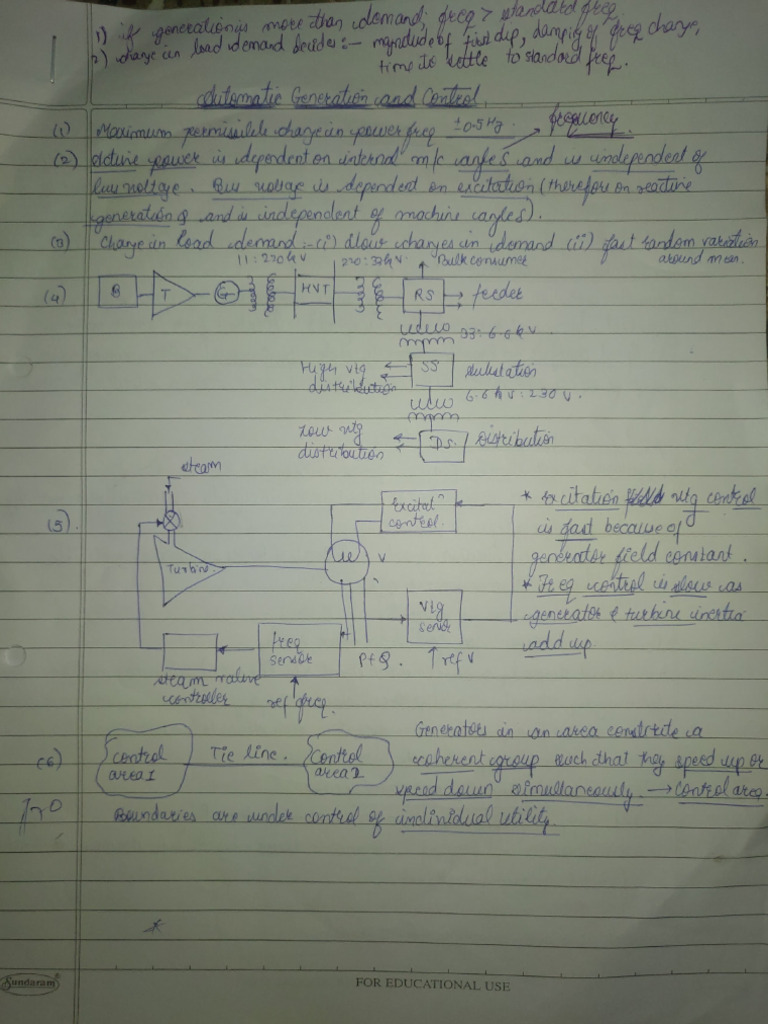 1) if generation is more than demand: freq > standard freq
2) change in load demand decides :- magnitude of first dip, damping of freq change,
time to settle to standard freq.
Automatic Generation and Control
(1) Maximum permissible change in power freq ±0.5Hz
frequency.
(2) Active power is dependent on internal m/c angle S and is independent of
bus voltage. Bus voltage is dependent on excitation (therefore on reactive
generation Q and is independent of machine angles).
(3) Change in load demand :- (i) slow changes in demand (ii) fast random variation
around mean.
11:220kV 220:33kV Bulk consumer
(4) B T G HVT RS feeder
33:6.6kV
High vtg SS substation
distribution
6.6kV:230V.
Low vtg DS. Distribution
distribution
steam
(5). Excitatⁿ
control.
Turbine. V
Vtg
sensor
freq
sensor P+Q. ref V
steam valve
controller ref freq.
* Excitation vtg control
is fast because of
generator field constant.
* Freq control is slow as
generator & turbine inertia
add up.
(6) control
area 1 Tie line. Control
area 2
Generators in an area constitute a
coherent group such that they speed up or
speed down simultaneously → Control area.
Boundaries are under control of individual utility
*
Sundaram®
FOR EDUCATIONAL USE